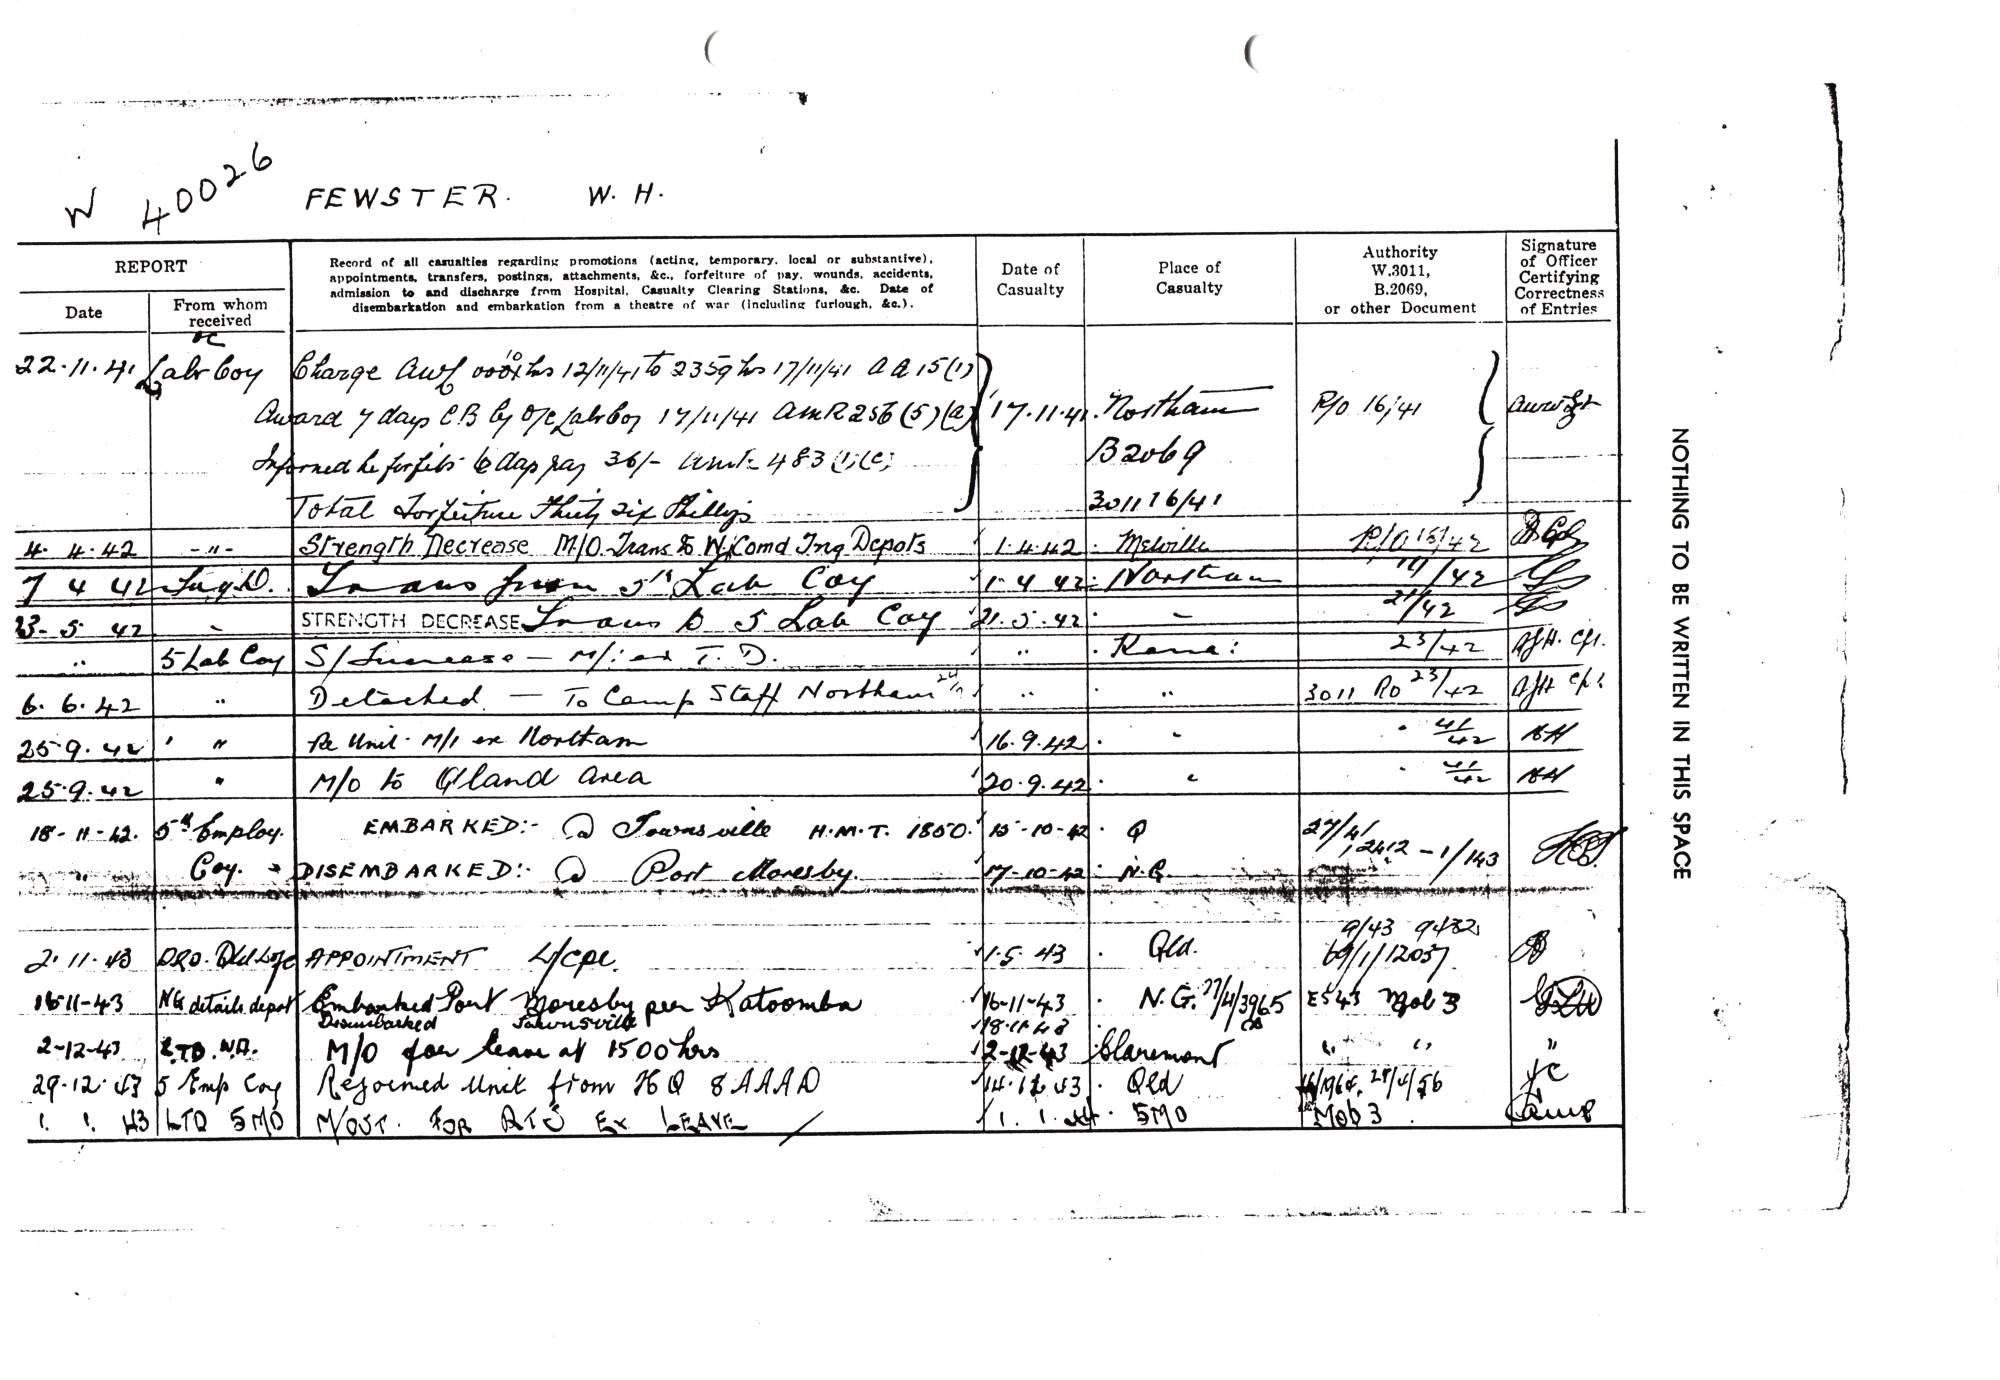 W 40026
FEWSTER. W. H.
REPORT
Date
From whom received
Record of all casualties regarding promotions (acting, temporary, local or substantive),
appointments, transfers, postings, attachments, &c., forfeiture of pay, wounds, accidents,
admission to and discharge from Hospital, Casualty Clearing Stations, &c. Date of
disembarkation and embarkation from a theatre of war (including furlough, &c.).
Date of Casualty
Place of Casualty
Authority
W.3011,
B.2069,
or other Document
Signature
of Officer
Certifying
Correctness
of Entries
22.11.41 Labr Coy Charge AWL hrs 12/11/41 to 2359 hrs 17/11/41 AA 15(1)
Award 7 days CB by O/C Labr Coy 17/11/41 AMR 256 (5) (a) 17.11.41 Northam R/O 16/41
Informed he forfeits 6 days pay 36/- 483 (1)(c) B2069
Total Forfeiture Thirty six Shillings 3011 16/41
4.4.42 -"- Strength Decrease M/O Trans to W. Comd Tng Depots 1.4.42 Melville R/O 15/42
7 4 42 Tng D. Trans from 5th Lab Coy 1.4.42 Northam 14/42
23-5 42 " STRENGTH DECREASE Trans to 5 Lab Coy 21.5.42 " 21/42
" 5 Lab Coy S/Increase - M/i ex T. D. " 23/42 AJH. Cpl.
6.6.42 " Detached - To Camp Staff Northam " " 3011 RO 23/42 AJH Cpl.
25.9.42 " Re Unit M/I ex Northam 16.9.42 " " 41/42
25.9.42 " M/O to Qland Area 20.9.42 " " 41/42
18-11-42. 5th Employ. EMBARKED:- @ Townsville H.M.T. 1850. 15-10-42 Q 27/4/2412-1/143
" Coy. DISEMBARKED:- @ Port Moresby. 17-10-42 N.G.
9/43 9482
2.11.43 DRO. Qld L of C APPOINTMENT L/Cpl. 1.5.43 Qld. 69/1/12057
16-11-43 NG details depot Embarked Port Moresby per Katoomba 16-11-43 N.G. 27/4/3965 E543 Mob 3
Disembarked Townsville 18.11.43
2-12-43 LTD. WA. M/O for leave at 1500 hrs 2-12-43 Claremont " " "
29.12.43 5 Emp Coy Rejoined Unit from HQ 8 AAAD 14.12.43 Qld
1. 1. 43 LTD 5MD M/OUT. FOR RTU Ex LEAVE 1. 1. 44 5MD Mob 3
NOTHING TO BE WRITTEN IN THIS SPACE